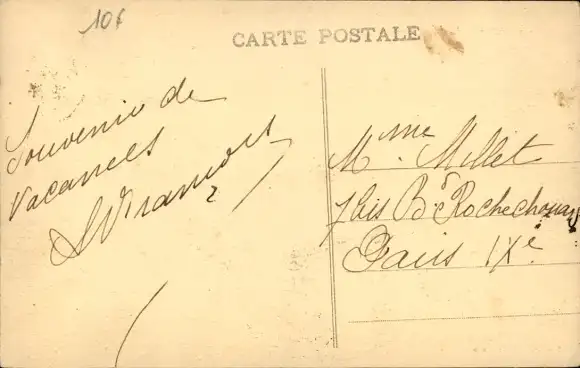 10f
CARTE POSTALE
Souvenir de
Vacances
Mme. Millet
7 bis Bd Rochechouart
Paris IXe